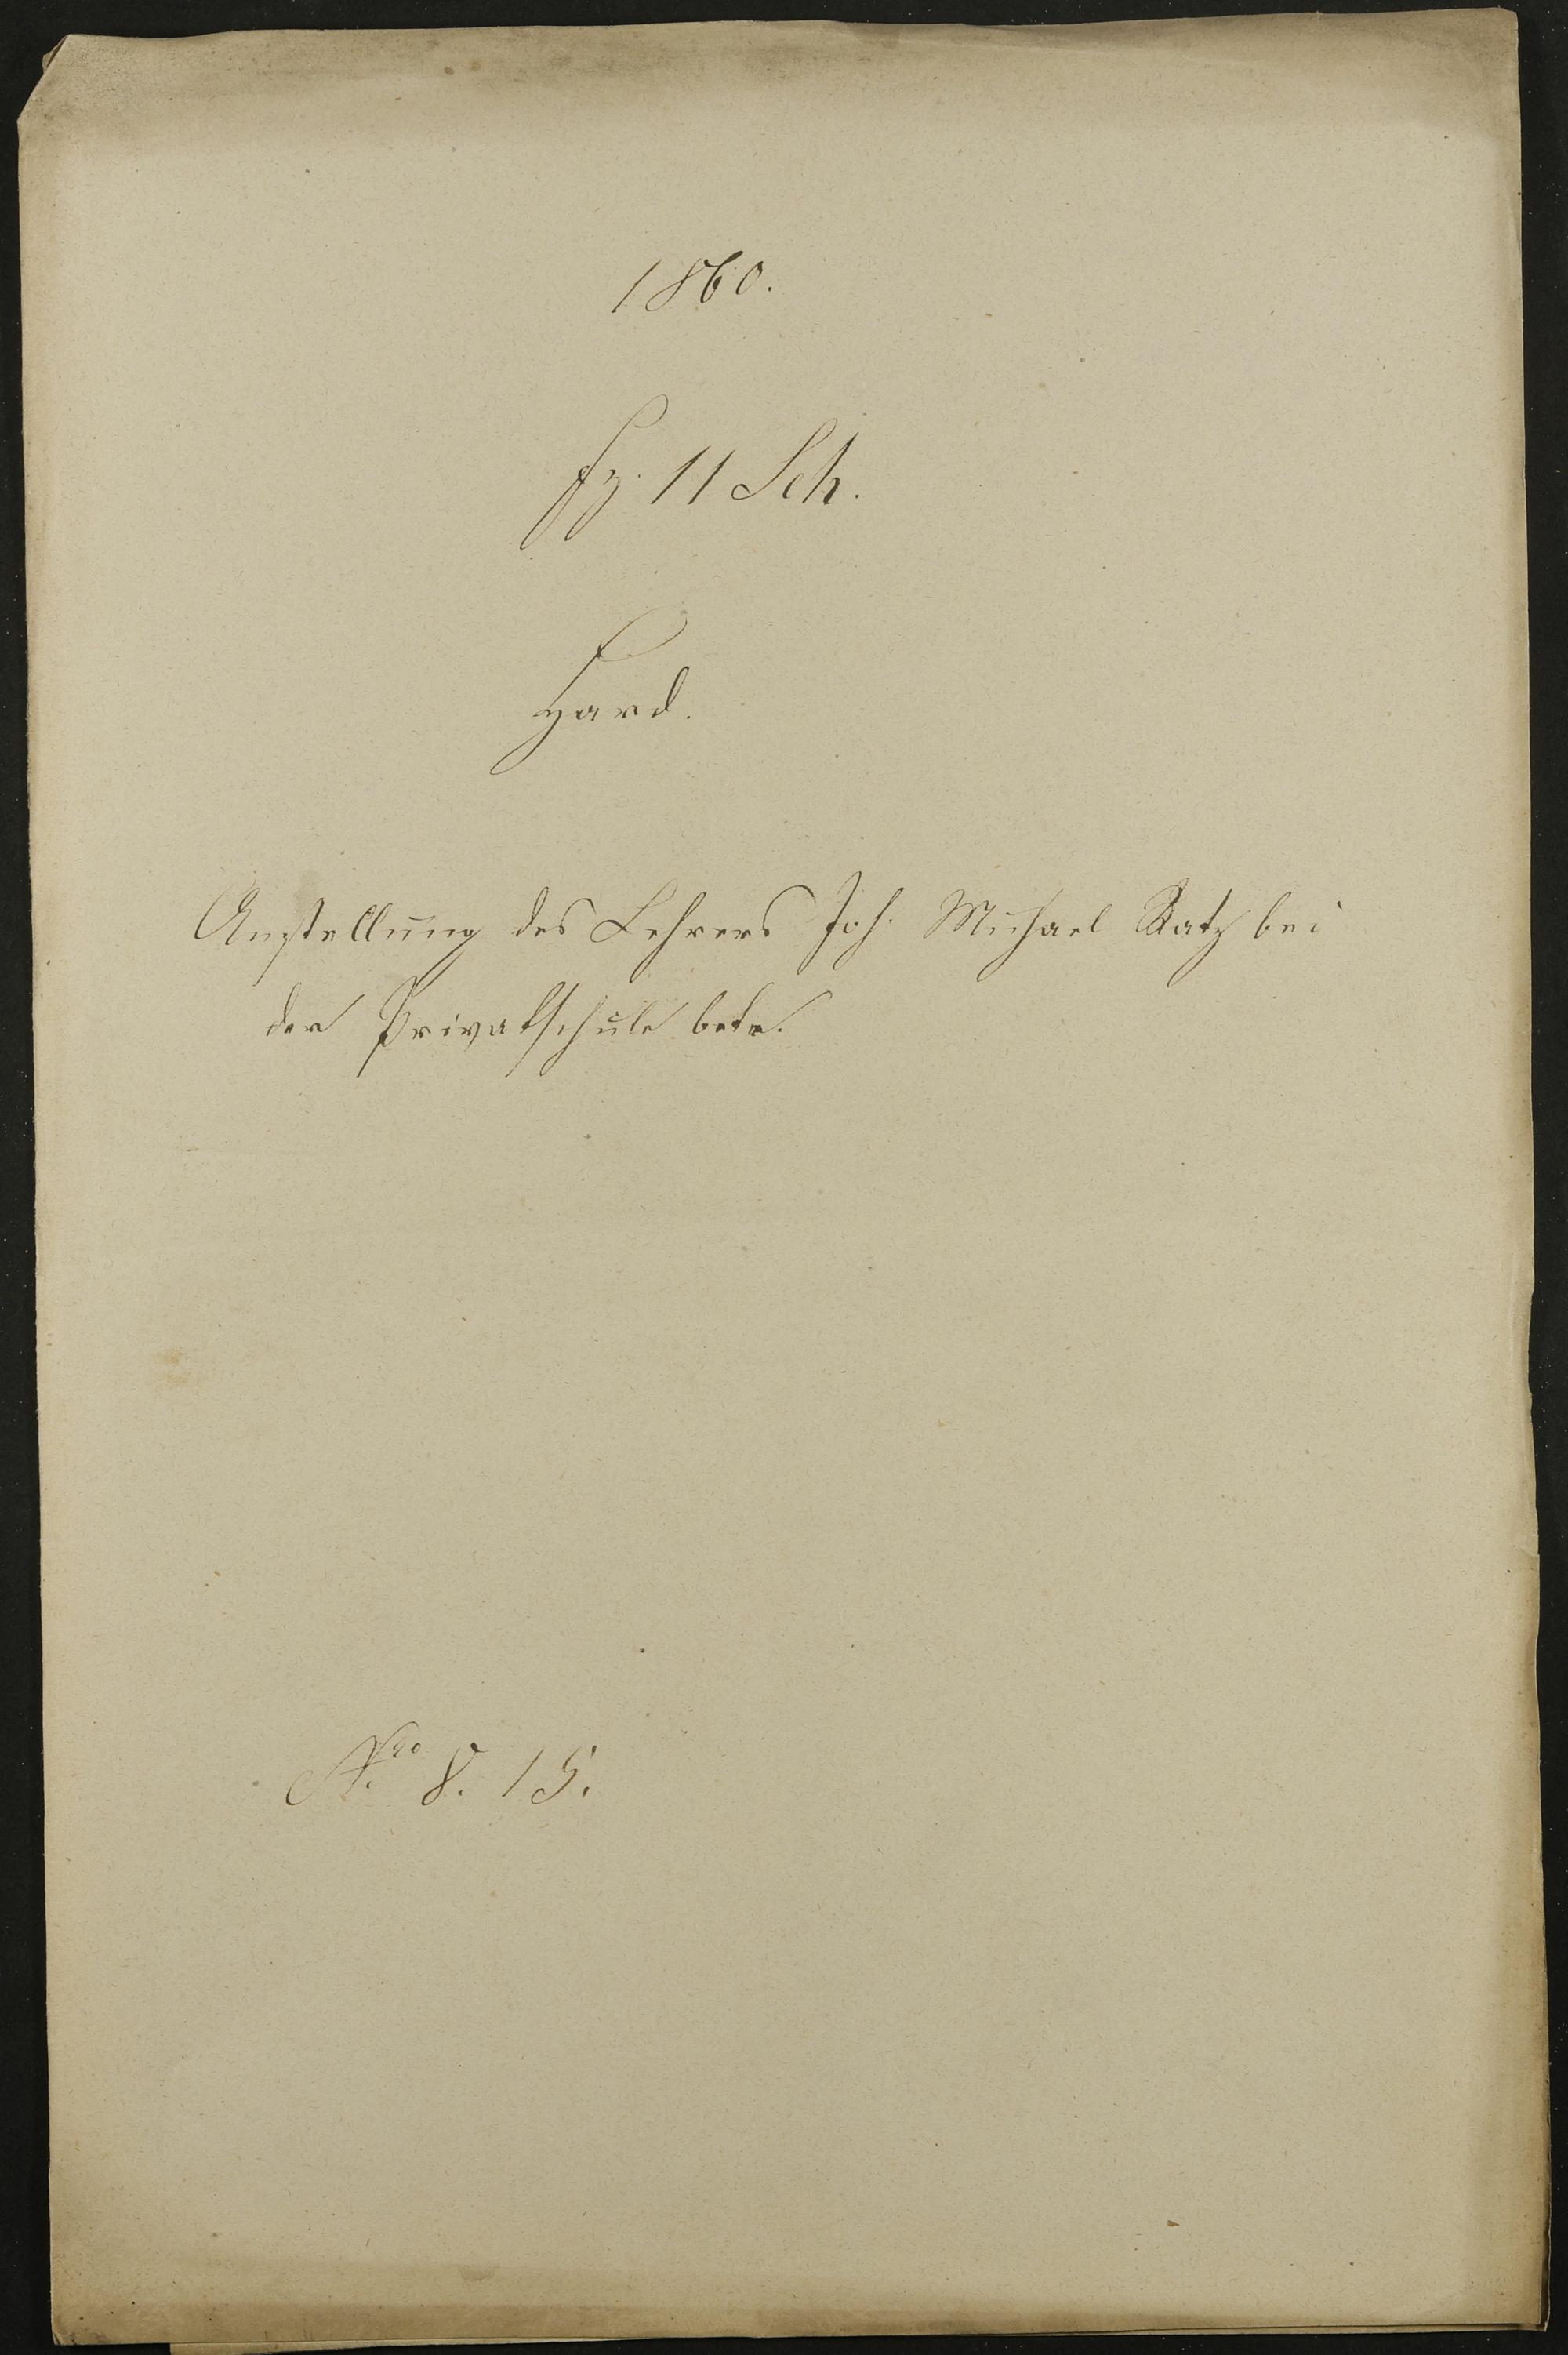 1860.
fz. 11 Sch.
Hard.
Anstellung des Lehrers Joh. Michael Ratz bei
der Privatschule betr.
Nro 8. 15.